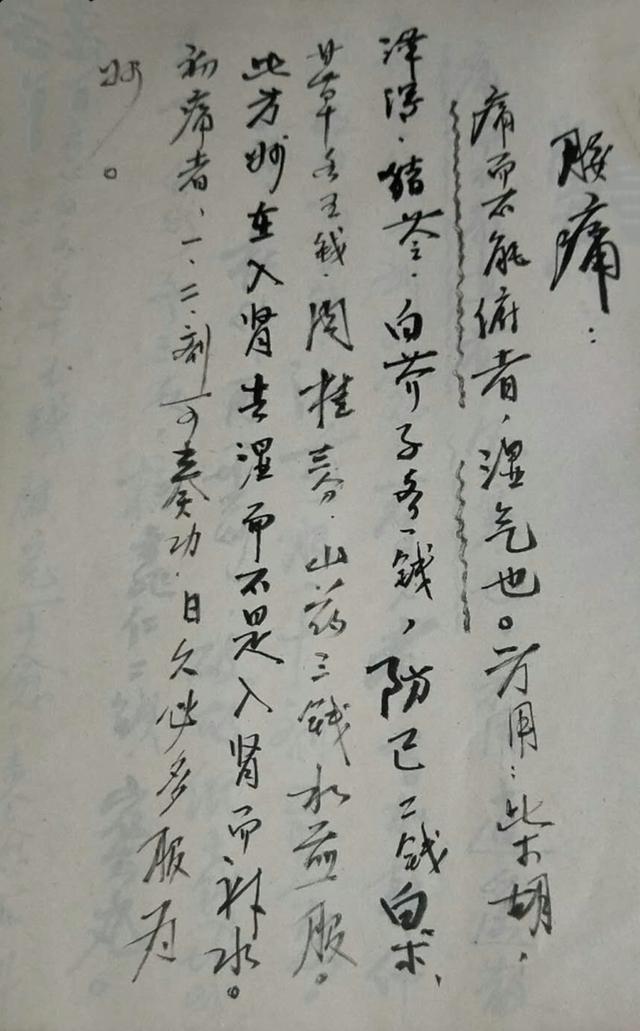 腰痛：
痛而不能俯者，湿气也。方用：柴胡，
泽泻．猪苓．白芥子各一钱，防己二钱白术、
甘草各五钱．肉桂三分．山药三钱水煎服。
此方妙在入肾去湿而不是入肾而补水。
初痛者、一、二、剂可奏功．日久必多服为
妙。